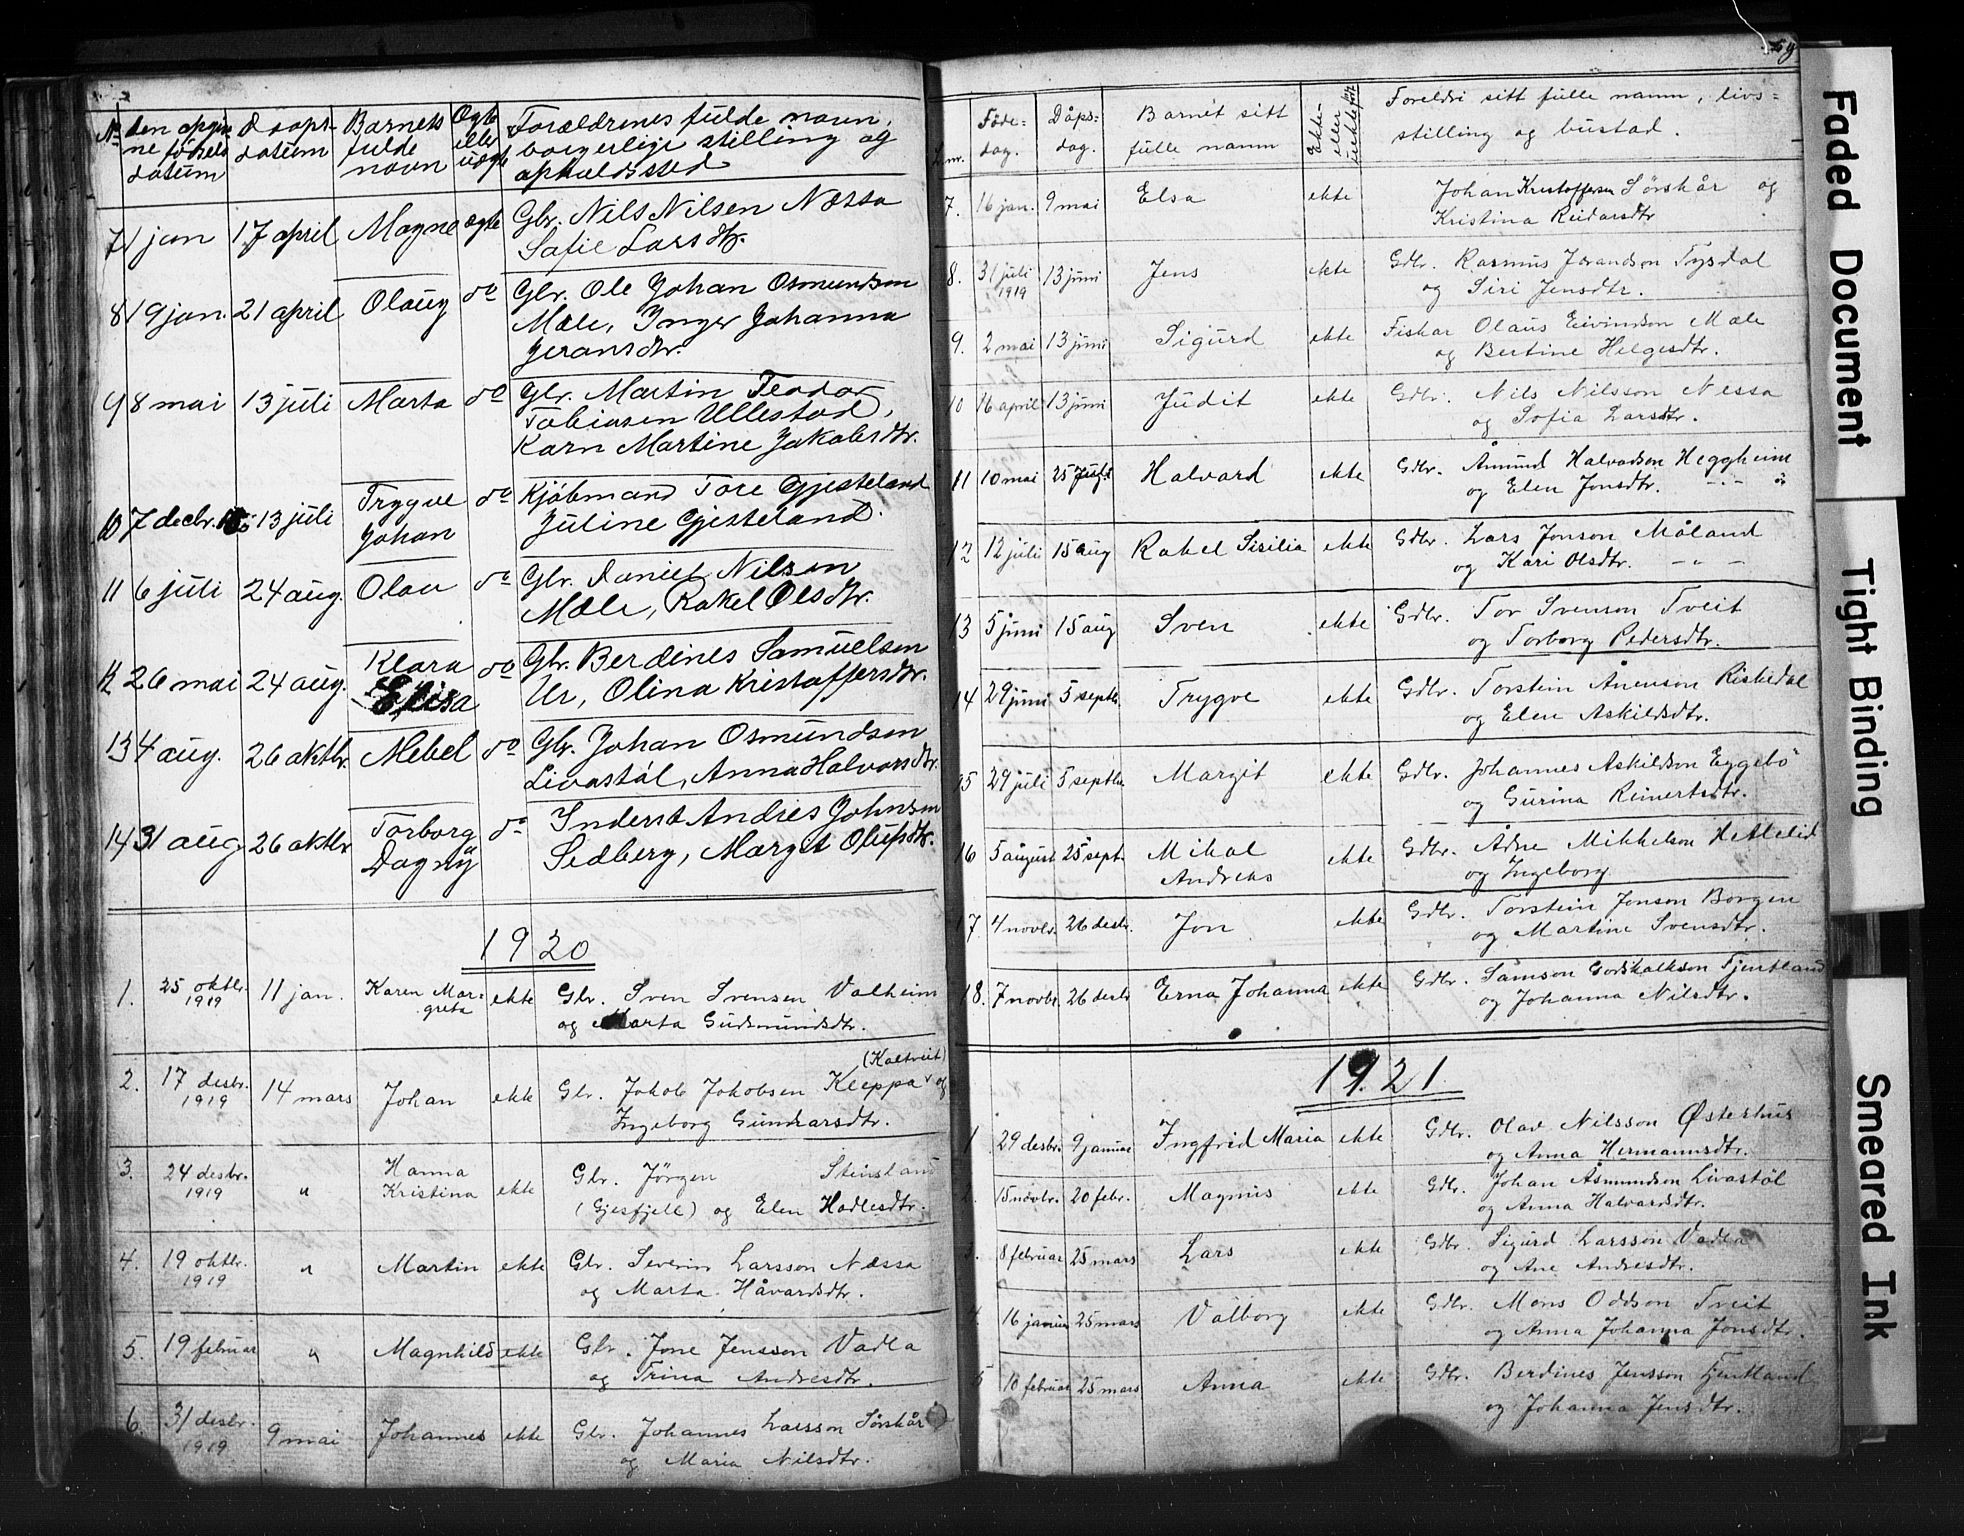 No den opgiv
ne fødsels
datum
Daaps-
datum
Barnets
fulde
navn
Ægte
eller
uægte
Forældrenes fulde navn,
borgerlige stilling og
opholdssted
7 1 jan 17 april Magne ægte Gbr. Nils Nilsen Nessa
Sofie Larsdtr.
8 19 jan. 21 april Olaug do Gbr. Ole Johan Osmundsen
Mæle, Inger Johanna
Jeransdtr.
9 8 mai 13 juli Marta do Gbr. Martin Teodor
Tobiasen Ullestad,
Karn Martine Jakobsdtr.
10 7 decbr. 13 juli Trygve
Johan do Kjøbmand Tore Gjesteland
Juline Gjesteland.
11 6 juli 24 aug. Olav do Gbr. Daniel Nilsen
Mæle, Rakel Olsdtr.
12 26 mai 24 aug. Klara
Elisa do Gbr. Berdines Samuelsen
Ur, Olina Kristoffersdtr.
13 4 aug. 26 oktbr. Mebel do Gbr. Johan Osmundsen
Livastøl, Anna Halvorsdtr.
14 31 aug 26 oktbr Torborg
Dagny do Inderst Andres Johnsen
Sedberg, Margit Olufsdtr.
1920
1. 25 oktbr.
1919 11 jan. Karen Mar-
greta ekte Gbr. Sven Svensen Valheim
og Marta Gudmundsdtr.
2. 17 desbr.
1919 14 mars Johan ekte Gbr. Jakob Jakobsen Kleppa (Kaltveit) og
Ingeborg Gunnarsdtr.
3. 24 desbr.
1919 " Hanna
Kristina ekte Gbr. Jörgen Stensland
(Gjesfjell) og Elen Hadlesdtr.
4. 19 oktbr.
1919 " Martin ekte Gbr. Severin Larsson Næssa
og Marta Håvardsdtr.
5. 19 februar " Magnhild ekte Gbr. Jone Jensson Vadla
og Trina Andresdtr.
6. 31 desbr.
1919 9 mai Johannes ekte Gbr. Johannes Larsson Sørskår
og Maria Nilsdtr.
59
Føde-
dag.
Dåps-
dag.
Barnet sitt
fulle namn
Ekte-
eller
uektefødt
Foreldri sitt fulle namn, livs-
stilling og bustad.
7. 16 jan. 9 mai Elsa ekte Johan Kristoffersen Sørskår og
Kristina Reidarsdtr
8. 31 juli
1919 13 juni Jens ekte Gdbr. Rasmus Jorandson Tysdal
og Siri Jensdtr.
9. 2 mai 13 juni Sigurd ekte Fiskar Olaus Eivindson Mæle
og Bertine Helgesdtr.
10 16 april 13 juni Judit ekte Gdbr. Nils Nilsson Nessa
og Sofia Larsdtr.
11 10 mai 25 Juli Halvard ekte Gdbr. Åmund Halvadson Heggheim
og Elen Jonsdtr. - " -
12 12 juli 15 aug Rakel Sisilia ekte Gdbr. Lars Jonson Måland
og Kari Olsdtr. - " -
13 5 juni 15 aug Sven ekte Gdbr. Tor Svenson Tveit
og Torborg Pedersdtr.
14 29 juni 5 septbr. Trygve ekte Gdbr. Torstein Ånenson Riskedal
og Elen Askildsdtr.
15 29 juli 5 septbr. Margit ekte Gdbr. Johannes Askildson Eggebö
og Gurina Reinertsdtr.
16 5 august 25 sept. Mikal
Andreas ekte Gdbr. Ådne Mikkelson Hetlelid
og Ingeborg
17. 4 novbr. 26 desbr. Jon ekte Gdbr. Torstein Jonson Borgen
og Martine Svensdtr.
18. 7 novbr. 26 desbr Erna Johanna ekte Gdbr. Samson Godskalkson Fjentland
og Johanna Nilsdtr.
1921.
1. 29 desbr. 9 januar Ingfrid Maria ekte Gdbr. Olav Nilsson Østerhus
og Anna Hermannsdtr.
2. 15 novbr. 20 febr. Magnus ekte Gdbr. Johan Åsmundson Livastöl
og Anna Halvardsdtr.
3. 8 februar 25 mars Lars ekte Gdbr. Sigurd Larsson Vadla
og Ane Andresdtr.
4 16 januar 25 mars Valborg ekte Gdbr. Mons Oddson Tveit
og Anna Johanna Jonsdtr.
5 10 februar 25 mars Anna ekte Gdbr. Berdines Jensson Fjentland
og Johanna Jensdtr.
Faded Document
Tight Binding
Smeared Ink